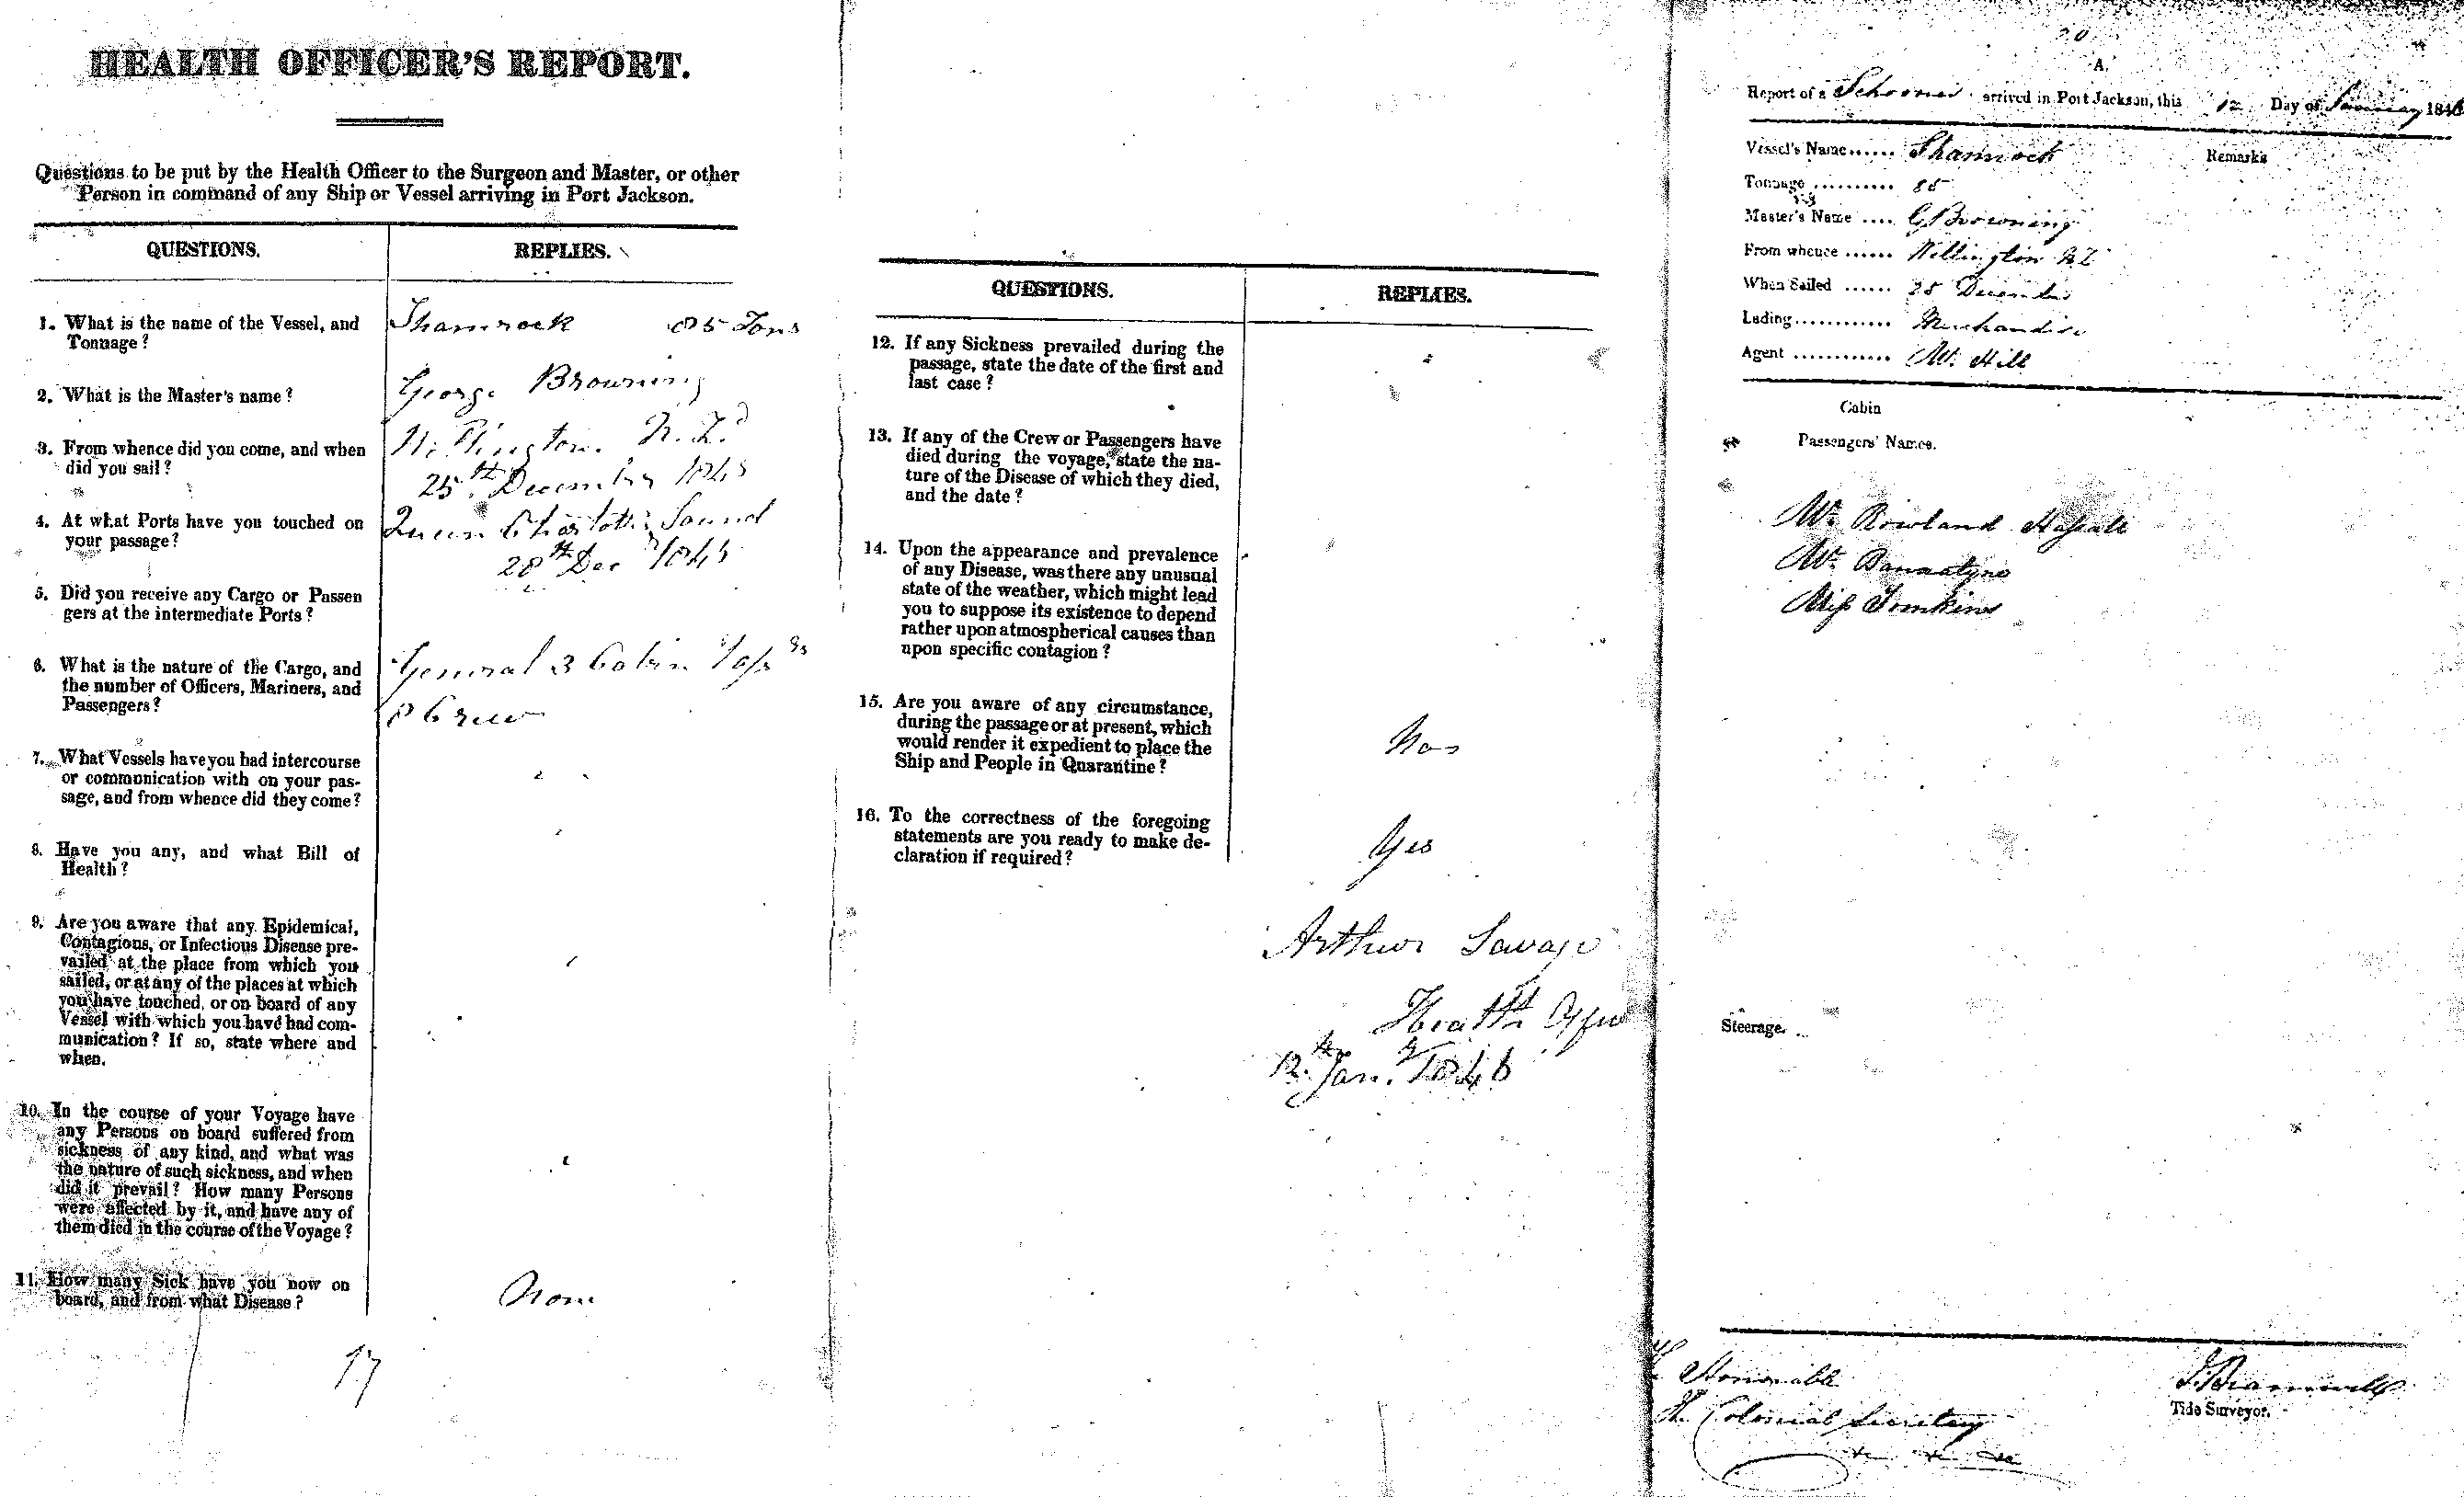 HEALTH OFFICER'S REPORT.
Questions to be put by the Health Officer to the Surgeon and Master, or other
Person in command of any Ship or Vessel arriving in Port Jackson.
QUESTIONS. REPLIES.
1. What is the name of the Vessel, and Shamrock 85 Tons
Tonnage?
2. What is the Master's name? George Browning
3. From whence did you come, and when Wellington. N.Z.
did you sail? 25th December 1845
4. At what Ports have you touched on Queen Charlotte Sound
your passage? 28th Dec 1845
5. Did you receive any Cargo or Passen
gers at the intermediate Ports?
6. What is the nature of the Cargo, and General 3 Cabin Pass
the number of Officers, Mariners, and
Passengers? 8 Crew
7. What Vessels have you had intercourse
or communication with on your pas-
sage, and from whence did they come?
8. Have you any, and what Bill of
Health?
9. Are you aware that any Epidemical,
Contagious, or Infectious Disease pre-
vailed at the place from which you
sailed, or at any of the places at which
you have touched, or on board of any
Vessel with which you have had com-
munication? If so, state where and
when.
10. In the course of your Voyage have
any Persons on board suffered from
sickness of any kind, and what was
the nature of such sickness, and when
did it prevail? How many Persons
were affected by it, and have any of
them died in the course of the Voyage?
11. How many Sick have you now on
board, and from what Disease? None
17
QUESTIONS. REPLIES.
12. If any Sickness prevailed during the
passage, state the date of the first and
last case?
13. If any of the Crew or Passengers have
died during the voyage, state the na-
ture of the Disease of which they died,
and the date?
14. Upon the appearance and prevalence
of any Disease, was there any unusual
state of the weather, which might lead
you to suppose its existence to depend
rather upon atmospherical causes than
upon specific contagion?
15. Are you aware of any circumstance,
during the passage or at present, which
would render it expedient to place the
Ship and People in Quarantine?
16. To the correctness of the foregoing
statements are you ready to make de-
claration if required? Yes
Arthur Savage
Health Officer
12th Jany. 1846
20
A.
Report of a Schooner arrived in Port Jackson, this 12 Day of January 1846
Vessel's Name...... Shamrock Remarks
Tonnage .......... 85
Master's Name .... G Browning
From whence ...... Wellington NZ
When Sailed ...... 25 December
Lading............ Merchandise
Agent ............ Mr. Hill
Cabin
Passengers' Names.
Mr. Rowland Hassall
Mr. Bannatyne
Miss Tomkins
Steerage.
The Honorable
The Colonial Secretary
J. Bramwell
Tide Surveyor.